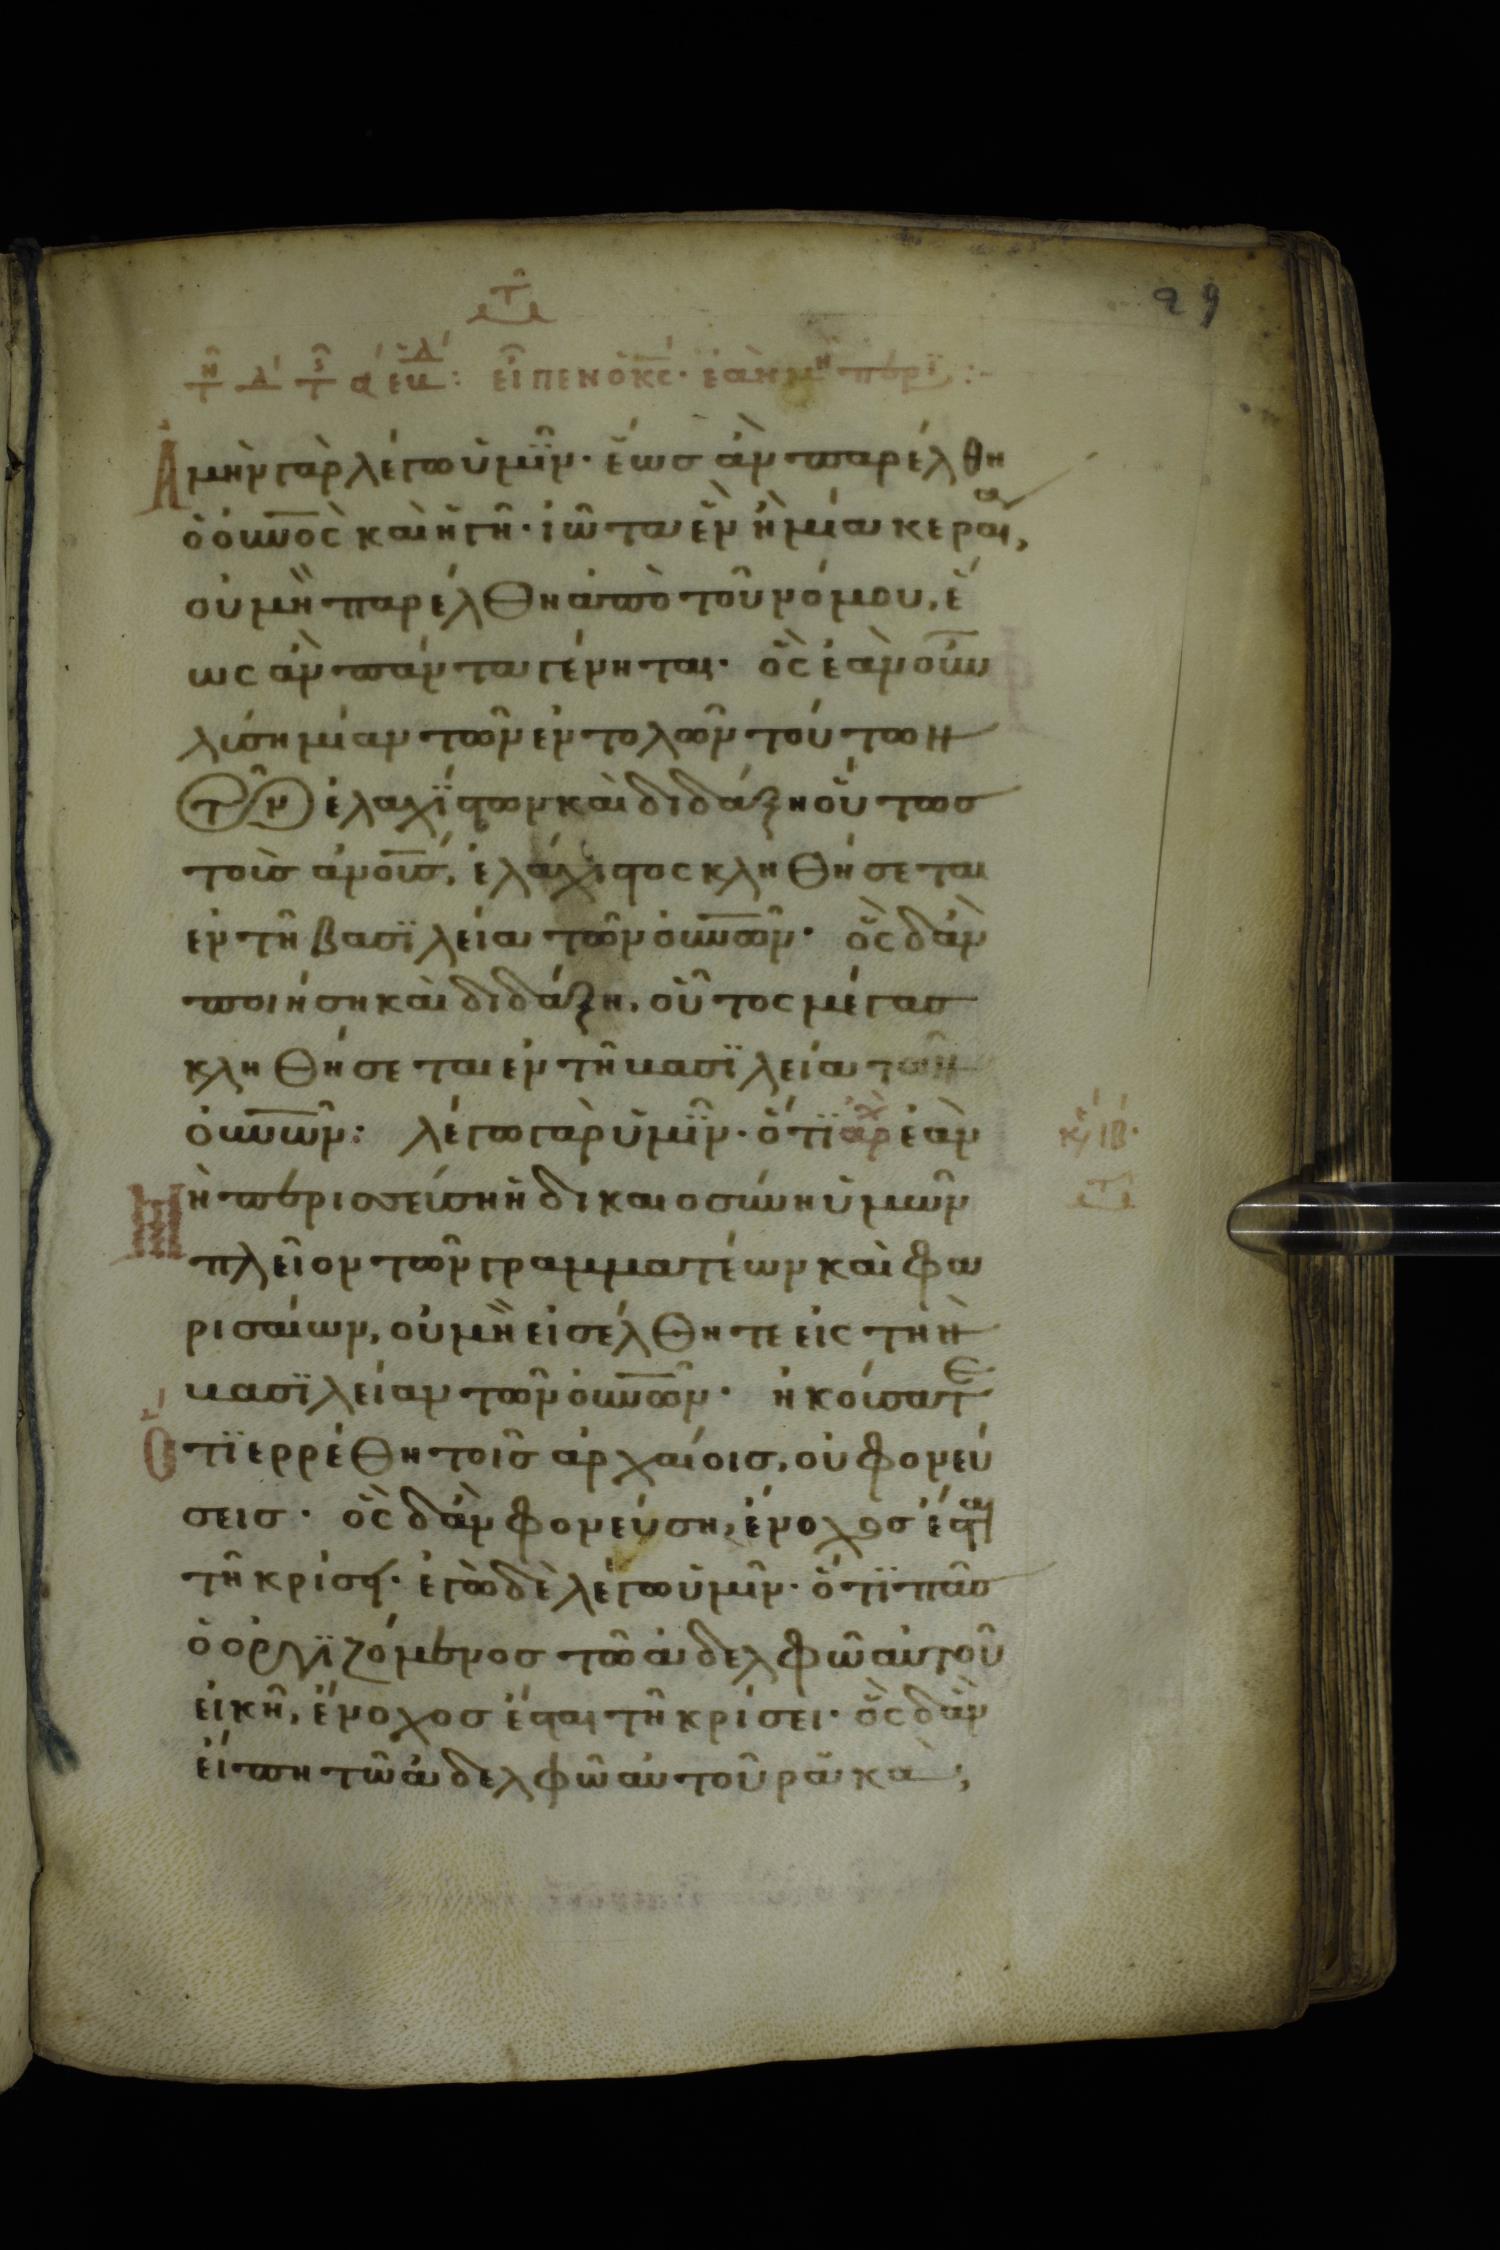 29
εἶπεν ὁ κς· ἐὰν μὴ περι:-
Ἀμὴν γὰρ λέγω ὑμῖν· ἕως ἂν παρέλθη
ὁ οὐνος καὶ ἡ γῆ· ἰῶτα ἓν ἢ μία κεραία,
οὐ μὴ παρέλθη ἀπὸ τοῦ νόμου, ἕ
ως ἂν πάντα γένηται· ὃς ἐὰν οὖν
λύση μίαν τῶν ἐντολῶν τούτων
τῶν ἐλαχίστων καὶ διδάξη οὕτως
τοὺς ἀνους, ἐλάχιστος κληθήσεται
ἐν τῆ βασιλεία τῶν οὐνων· ὃς δ' ἂν
ποιήση καὶ διδάξη, οὗτος μέγας
κληθήσεται ἐν τῆ βασιλεία τῶν
οὐνων: λέγω γὰρ ὑμῖν· ὅτι ἀρχ ἐὰν
μὴ περισσεύση ἡ δικαιοσύνη ὑμῶν
κυ ιβ·
πλεῖον τῶν γραμματέων καὶ φα
ρισαίων, οὐ μὴ εἰσέλθητε εἰς τὴν
βασιλείαν τῶν οὐνων· ἠκούσατε
ὅτι ἐρρέθη τοῖς ἀρχαίοις, οὐ φονεύ
σεις· ὃς δ' ἂν φονεύση, ἔνοχος ἔσται
τῆ κρίσει· ἐγὼ δὲ λέγω ὑμῖν· ὅτι πᾶς
ὁ ὀργιζόμενος τῶ ἀδελφῶ αὐτοῦ
εἰκῆ, ἔνοχος ἔσται τῆ κρίσει· ὃς δ' ἂν
εἴπη τῶ ἀδελφῶ αὐτοῦ ρακὰ,